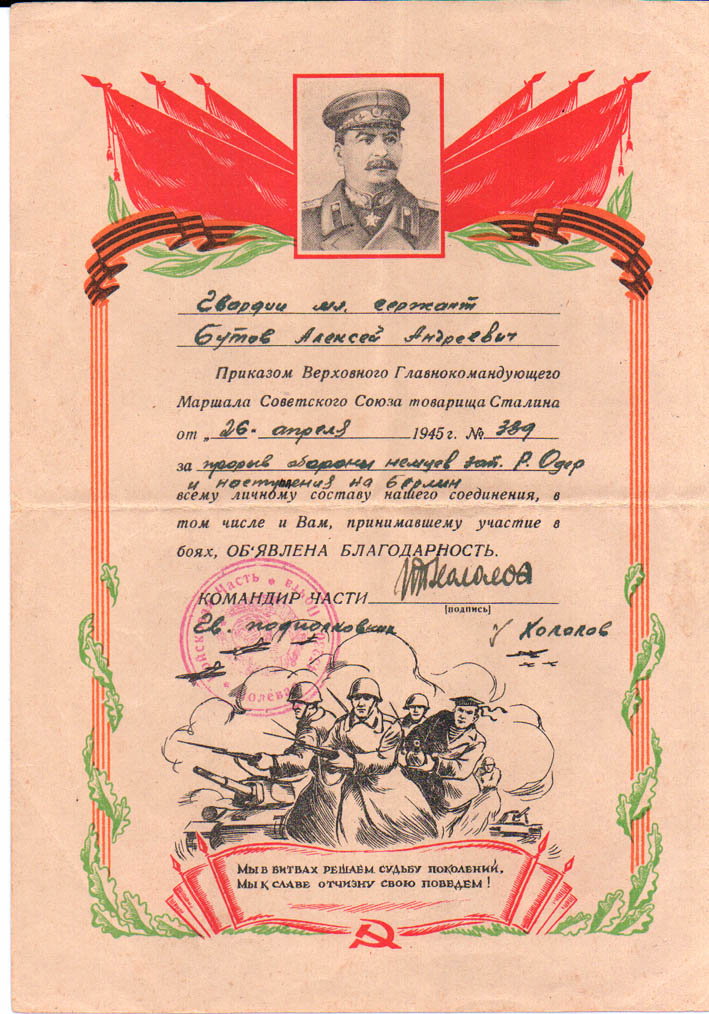 Гвардии мл. сержант
Бутов Алексей Андреевич
Приказом Верховного Главнокомандующего
Маршала Советского Союза товарища Сталина
от „26" апреля 1945 г. № 339
за прорыв обороны немцев зап. р. Одер
и наступления на Берлин
всему личному составу нашего соединения, в
том числе и Вам, принимавшему участие в
боях, ОБ'ЯВЛЕНА БЛАГОДАРНОСТЬ.
КОМАНДИР ЧАСТИ
[подпись]
Гв. подполковник
Полевая
часть
МЫ В БИТВАХ РЕШАЕМ СУДЬБУ ПОКОЛЕНИЙ,
МЫ К СЛАВЕ ОТЧИЗНУ СВОЮ ПОВЕДЕМ!